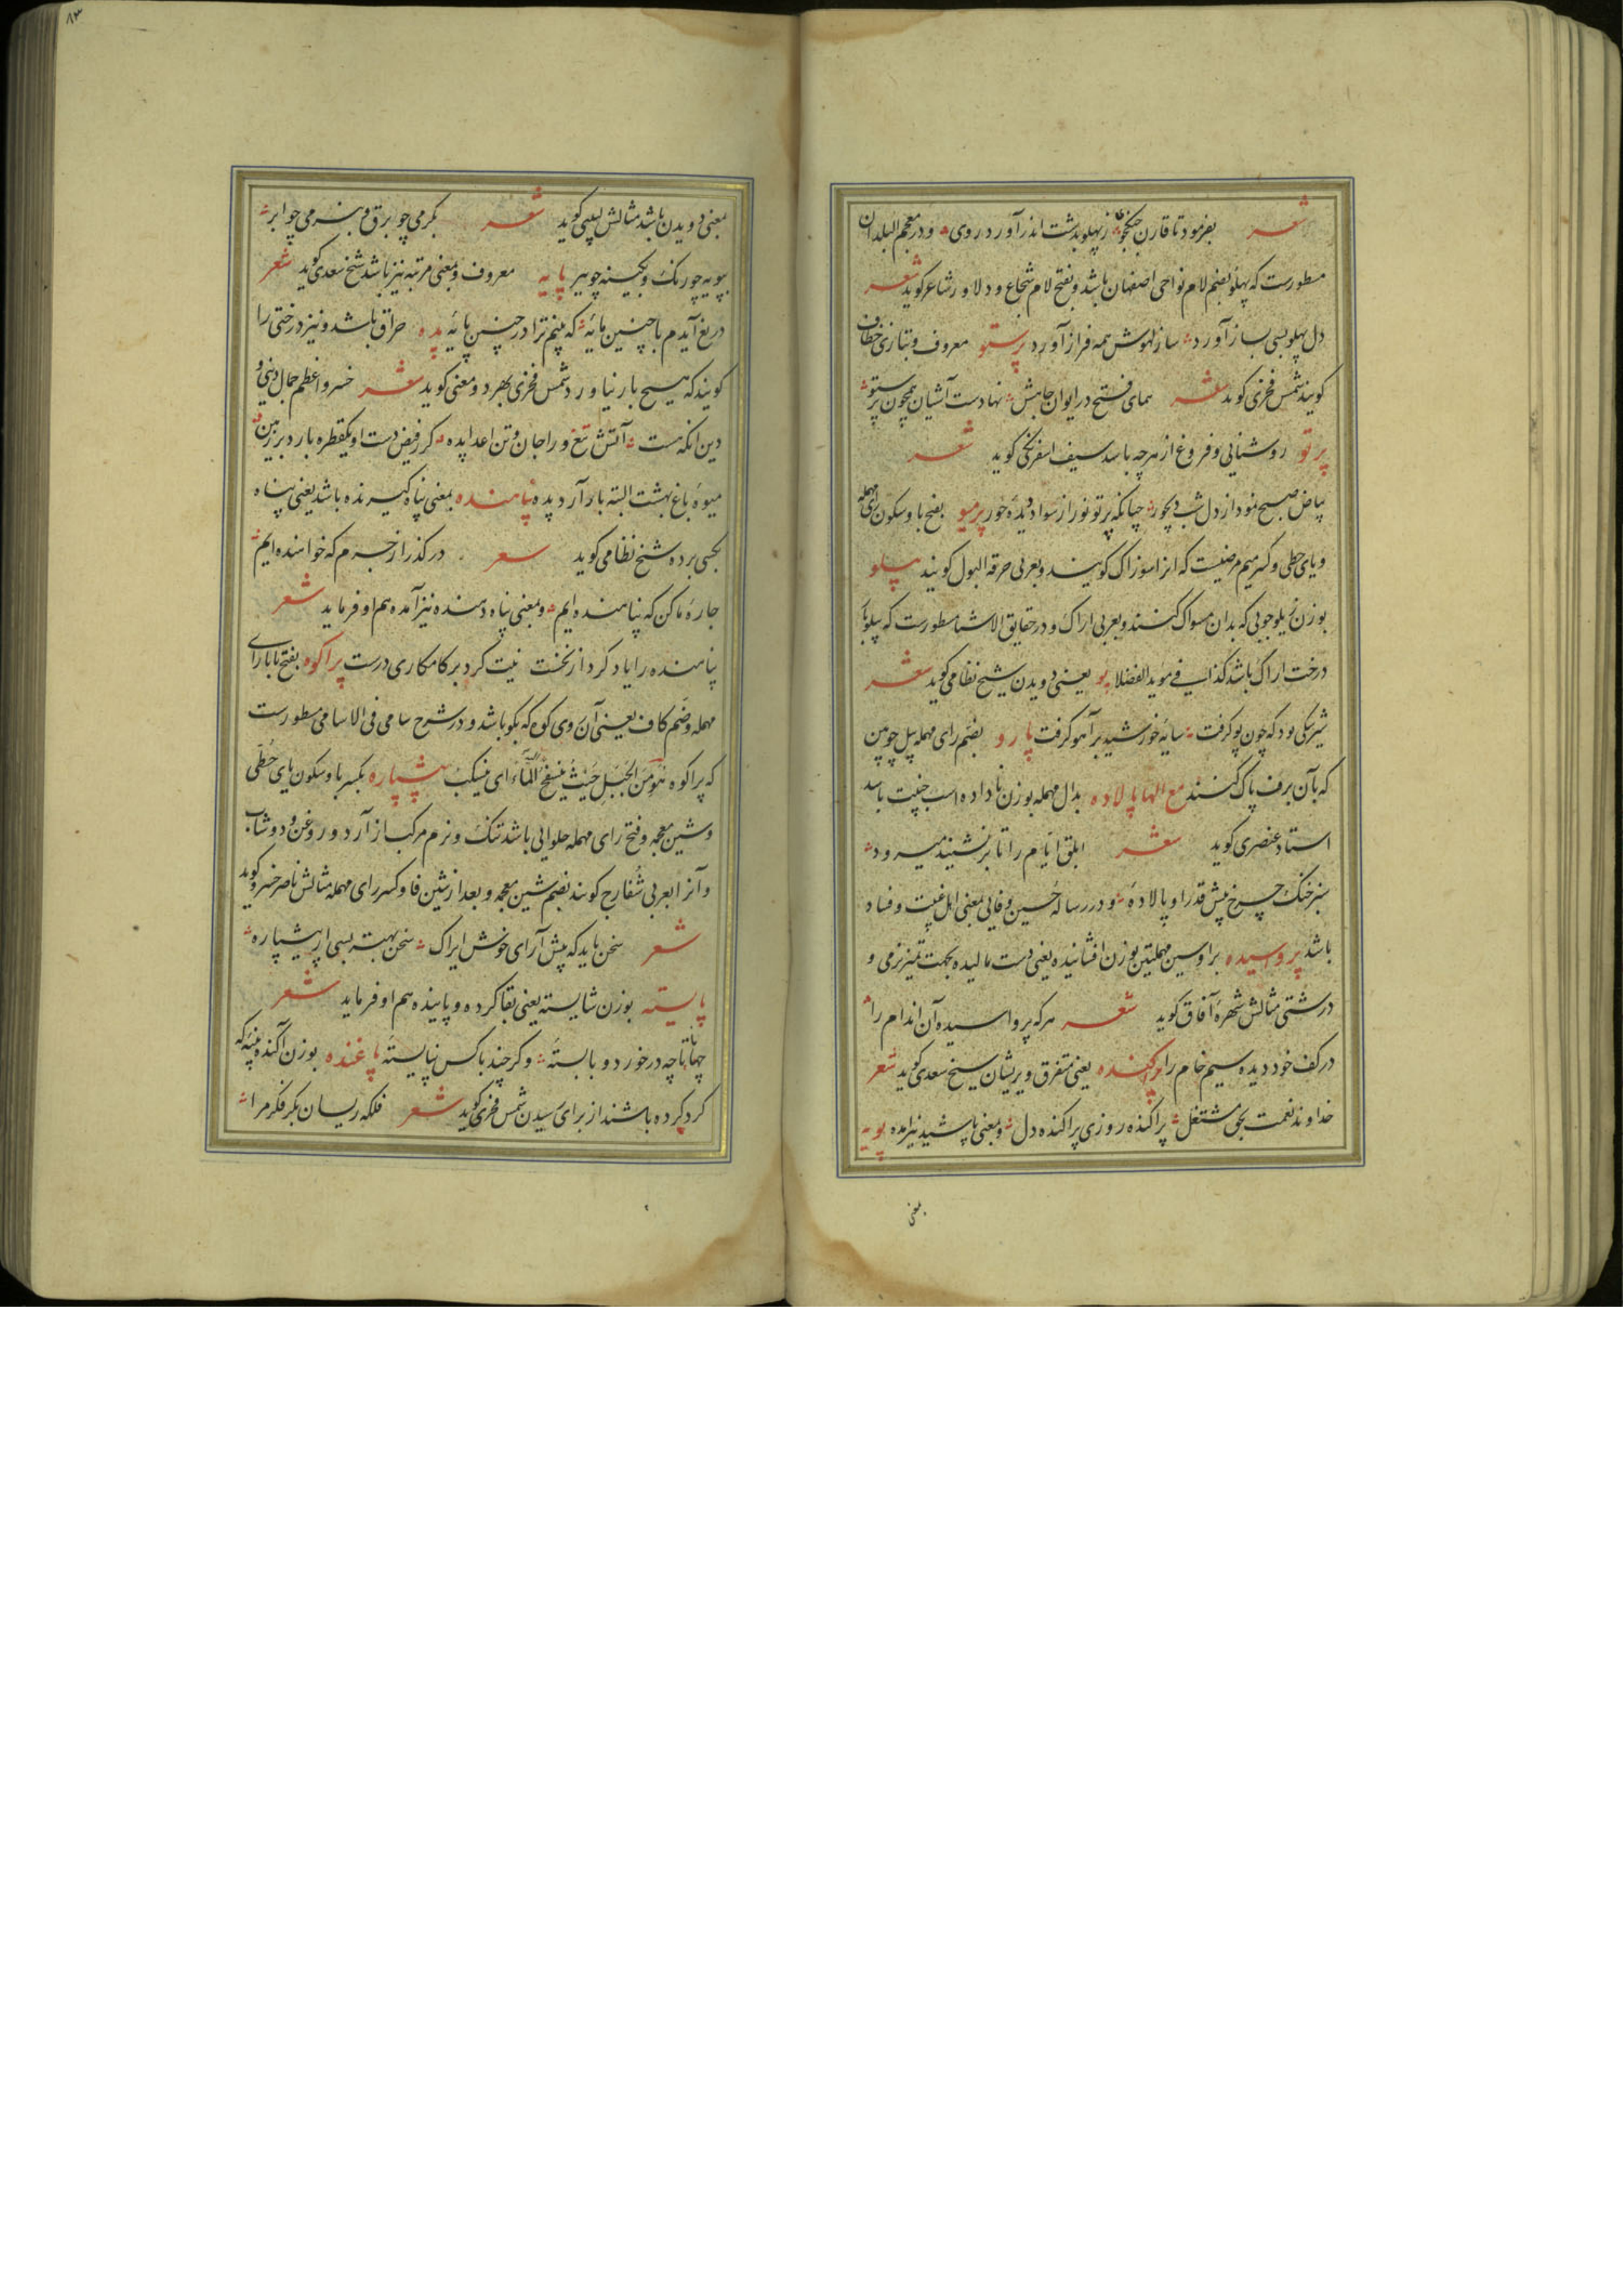 شعر بفرمود تا قارن جنگجو ز پهلو بدشت اندر آورد روی و در معجم البلدان
مسطورست که پهلو بضم لام نواحی اصفهان باشد و بفتح لام شجاع و دلاور شاعر گوید شعر
دل پهلو بسی بساز آورد ساز لهوش همه فراز آورد پرستو معروف و بتازی خطاف
گویند شمس فخری گوید شعر همای فتح در ایوان جاهش نهادست آشیان همچون پرستو
پرتو روشنایی و فروغ از هرچه باشد سیف اسفرنگی گوید شعر
بیاض صبح نمود از دل شب دیجور چنانکه پرتو نور از سواد دیدهٔ حور پرمیو بفتح با و سکون رای مهمله
و یای حطی و کسر میم مرضیست که انرا سوزاک کویند و بعربی حرقة البول کویند پیلو
بوزن زیلو چوبی که بدان مسواک کنند و بعربی اراک و در حقایق الاشیا مسطورست که پیلو با
درخت اراک باشد کذا فی موید الفضلا پو یعنی دویدن شیخ نظامی گوید شعر
شیر سکی بود که چون پو گرفت سایهٔ خورشید بر آهو گرفت پارو بضم رای مهمله بیل چوبین
که بآن برف پاک کنند مع الها پالاده بدال مهمله بوزن ناداده اسب جنیبت باشد
استاد عنصری گوید شعر ابلق ایام را تا بر نشیند میرود
سبز خنگ چرخ پیش قدر او پالاده و در رساله حسین وفایی بمعنی اهل غیبت و فساد
باشد پرواسیده برا و سین مهملتین بوزن افشانیده یعنی دست مالیده بجهت تمیز نرمی و
درشتی مثالش شهره آفاق گوید شعر هر که پرواسیده آن اندام را
در کف خود دیده سیم خام را پراکنده یعنی متفرق و پریشان شیخ سعدی گوید شعر
خداوند نعمت بحق مشتغل پراکنده روزی پراکنده دل و بمعنی پاشیده نیز آمده پویه
بمعنی
۸۳
بمعنی دویدن باشد مثالش لبیبی گوید شعر بگرمی چو برق و بنرمی چو ابر
بپویه چو رنگ و بکینه چو ببر پایه معروف و بمعنی مرتبه نیز باشد شیخ سعدی گوید شعر
دریغ آیدم با چنین مایهٔ که بینم ترا در چنین پایهٔ پده حراق باشد و نیز درختی را
گویند که هیچ بار نیاورد شمس فخری بهر دو معنی گوید شعر خسرو اعظم جمال دنیی و
دین انکه هست آتش تیغ ورا جان و تن اعدا پده گر ز فیض دست او یکقطره بارد بر زمین
میوهٔ باغ بهشت البته بار آرد پده پناهنده بمعنی پناه گیرنده باشد یعنی پناه
بکسی برده شیخ نظامی گوید شعر در گذر از جرم که خواهنده ایم
چارهٔ ما کن که پناهنده ایم و بمعنی پناه دهنده نیز آمده هم او فرماید شعر
پناهنده را یاد کرد از نخست نیت کرد بر کامکاری درست پراکوه بفتح با با رای
مهمله و ضم کاف یعنی آن روی کوه که بکو باشد و در شرح سامی فی الاسامی مسطورست
که پراکوه هو من الجبل حیث ینسفح الماء ای ینسکب پیشپاره بکسر با و سکون یای حطی
و شین معجمه و فتح رای مهمله حلوایی باشد تنک و نرم مرکب از آرد و روغن و دوشاب
و آنرا بعربی شفارج گویند بضم شین معجمه و بعد از شین فا و کسر رای مهمله مثالش ناصر خسرو گوید
شعر سخن باید که پیش آرای خوش ایراک سخن بهتر بسی از پیشپاره
پایسته بوزن شایسته یعنی بقا کرده و پاینده هم او فرماید شعر
جهانا چه در خورد و بایستهٔ و گر چند با کس نپایستهٔ پاغنده بوزن آکنده پنبه که
گرد کرده باشند از برای ریسیدن شمس فخری گوید شعر فلکه ریسان بکر فکر مرا